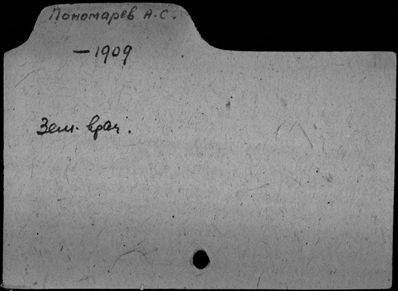 Пономарев А.С.
— 1909
Зем. врач.